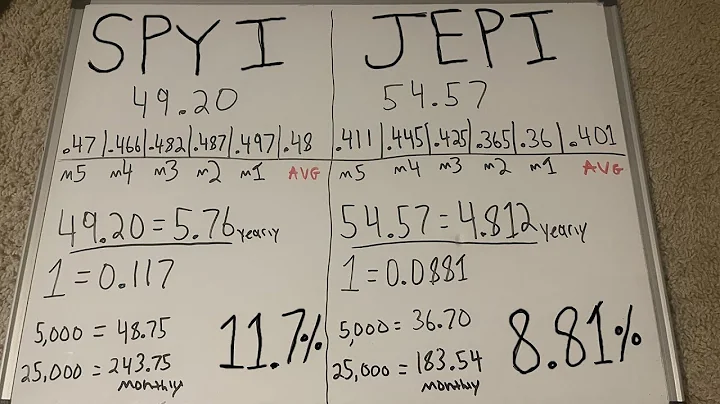 SPYI
49.20
.47 | .466 | .482 | .487 | .497 | .48
m5 m4 m3 m2 m1 AVG
49.20 = 5.76 yearly
1 = 0.117
5,000 = 48.75
25,000 = 243.75
monthly
11.7%
JEPI
54.57
.411 | .445 | .425 | .365 | .36 | .401
m5 m4 m3 m2 m1 AVG
54.57 = 4.812 yearly
1 = 0.0881
5,000 = 36.70
25,000 = 183.54
monthly
8.81%